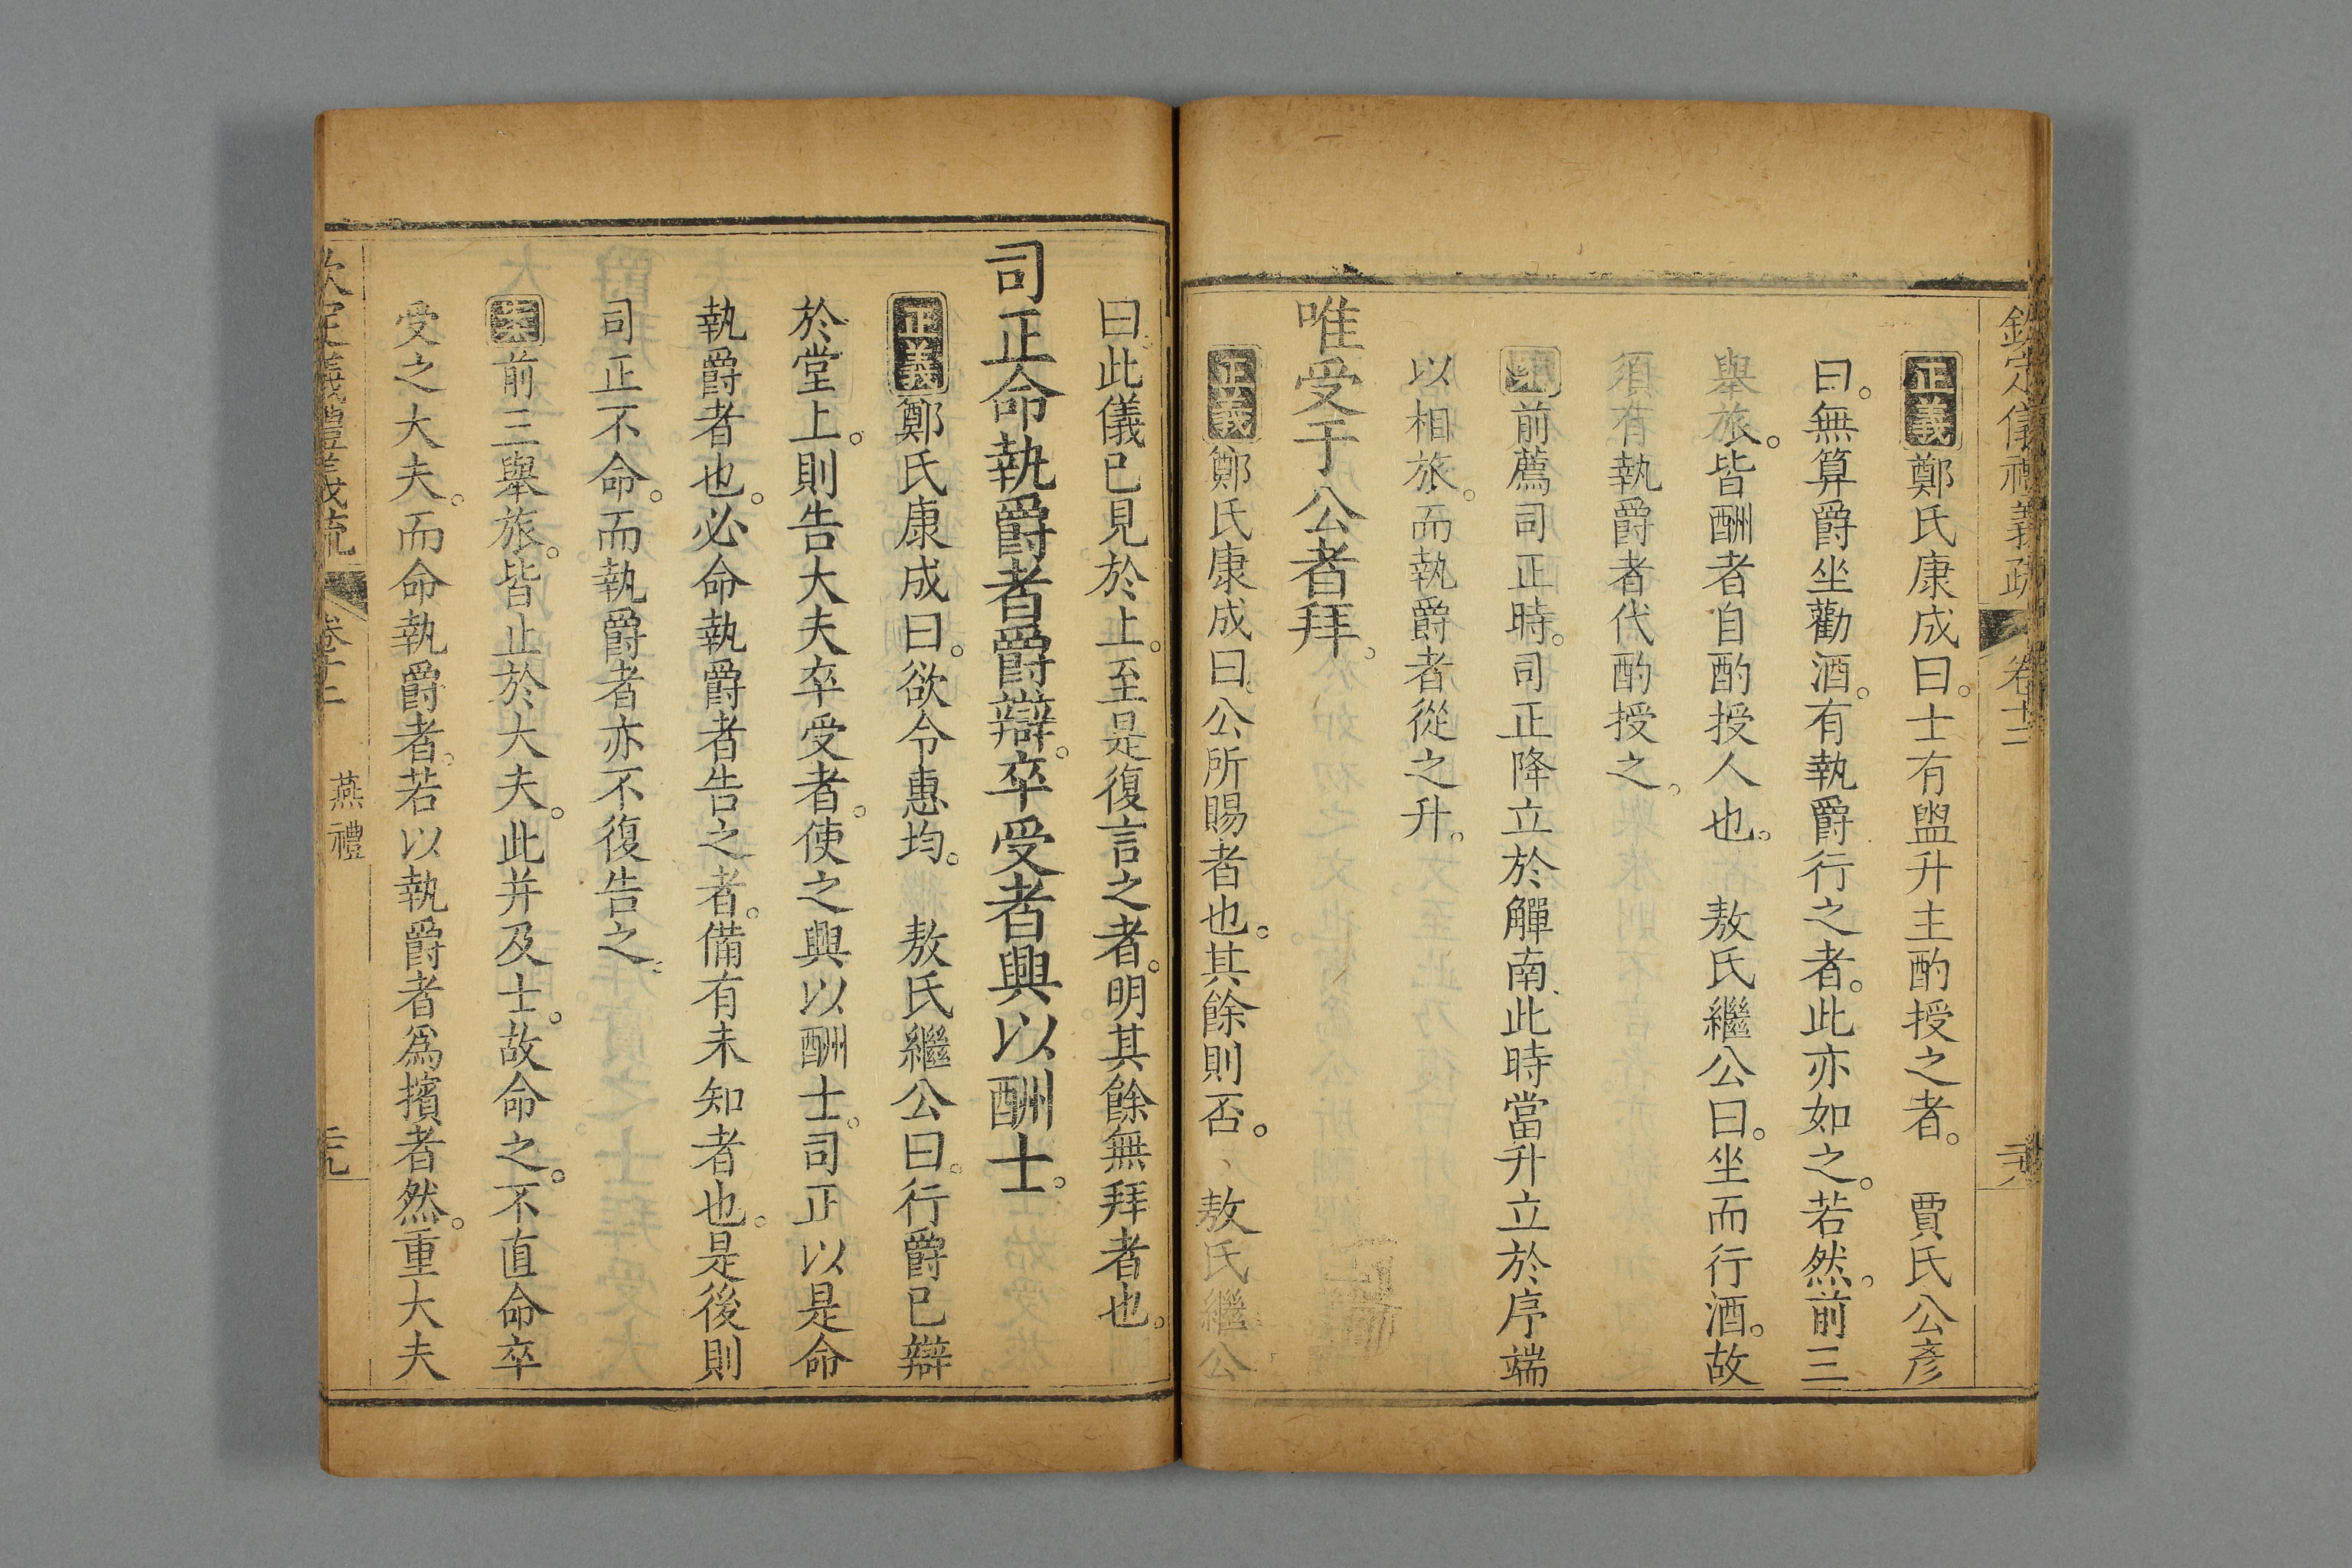 欽定儀禮義疏 卷十二
正義鄭氏康成曰。士有盥升主酌授之者。 賈氏公彥
曰。無算爵坐勸酒。有執爵行之者。此亦如之。若然。前三
舉旅。皆酬者自酌授人也。 敖氏繼公曰。坐而行酒。故
須有執爵者代酌授之。
案前薦司正時。司正降立於觶南此時當升立於序端
以相旅。而執爵者從之升。
唯受于公者拜。
正義鄭氏康成曰。公所賜者也。其餘則否。 敖氏繼公
曰此儀已見於上。至是復言之者。明其餘無拜者也。
司正命執爵者爵辯。卒受者興以酬士。
正義鄭氏康成曰。欲令惠均。 敖氏繼公曰。行爵已辯
於堂上。則告大夫卒受者。使之興以酬士。司正以是命
執爵者也。必命執爵者告之者。備有未知者也。是後則
司正不命。而執爵者亦不復告之。
案前三舉旅。皆止於大夫。此并及士。故命之。不直命卒
受之大夫。而命執爵者。若以執爵者爲擯者然。重大夫
欽定儀禮義疏 卷十二 燕禮